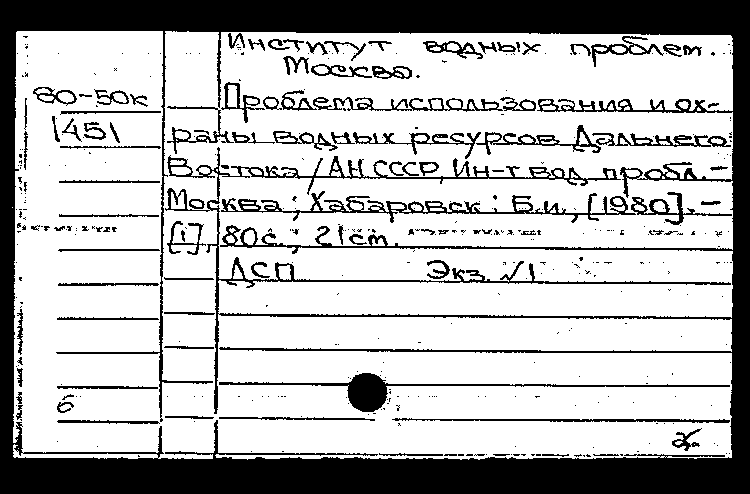 Институт водных проблем.
Москва.
80-50к
1451
Проблема использования и ох-
раны водных ресурсов Дальнего
Востока / АН СССР, Ин-т вод. пробл. -
Москва ; Хабаровск : Б.и., [1980]. -
[1], 80 с. ; 21 cm.
ДСП Экз. √1
б